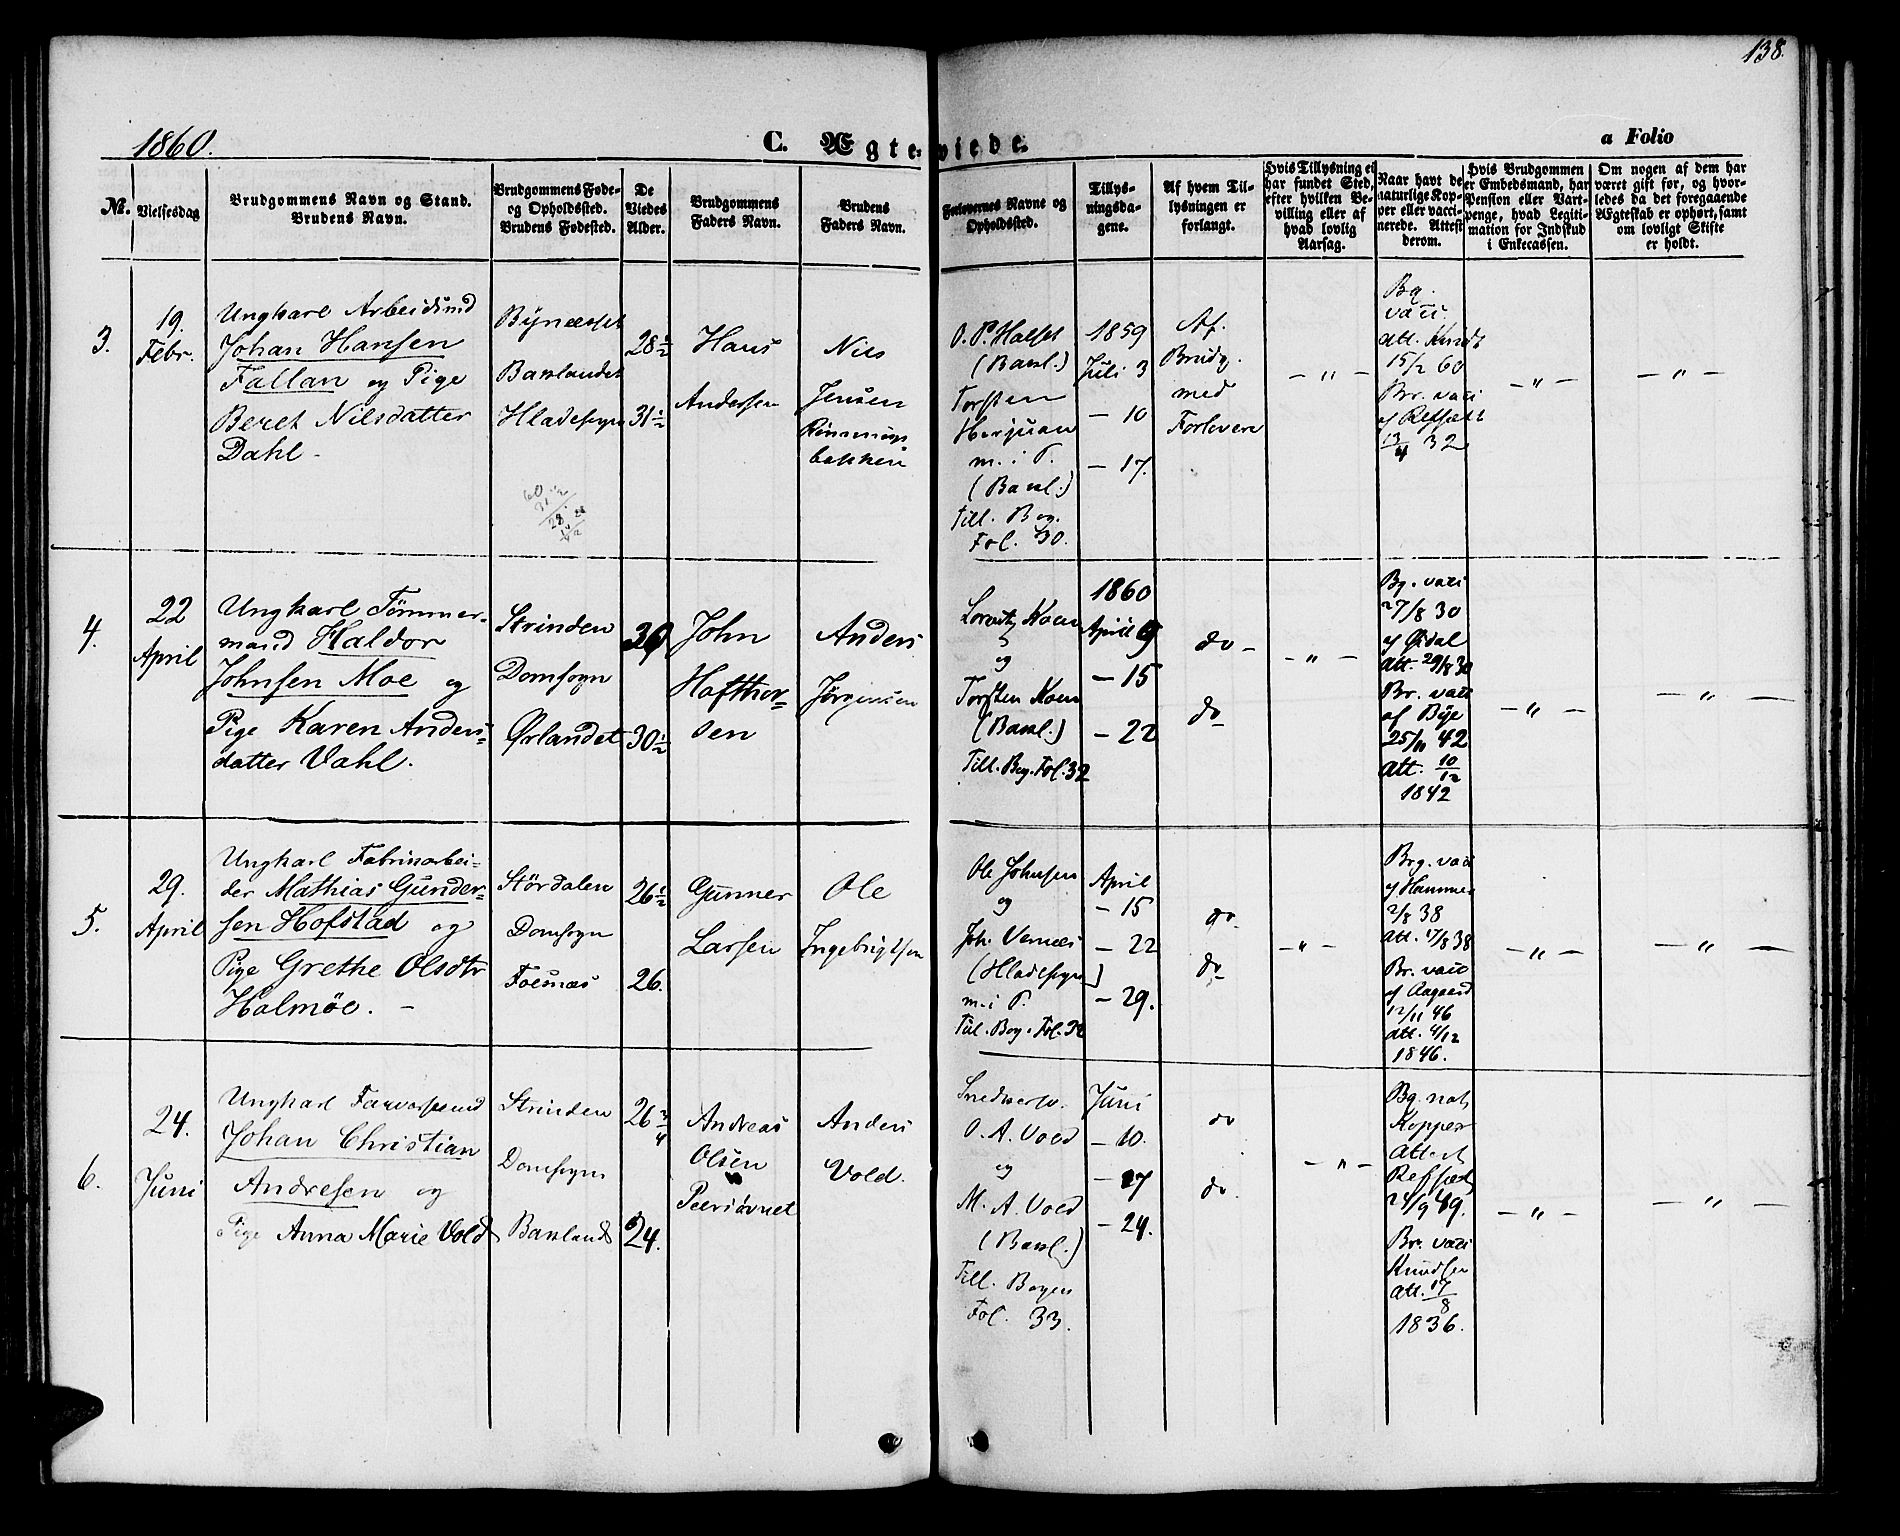 138.
1860.
C. Ægteviede.
a Folio
No.
Vielsesdag
Brudgommens Navn og Stand.
Brudens Navn.
Brudgommens Føde-
og Opholdssted.
Brudens Fødested.
De
Viedes
Alder.
Brudgommens
Faders Navn.
Brudens
Faders Navn.
Forlovernes Navne og
Opholdssted.
Tillys-
ningsda-
gene.
Af hvem Til-
lysningen er
forlangt.
Hvis Tillysning ei
har fundet Sted,
efter hvilken Be-
villing eller af
hvad lovlig
Aarsag.
Naar havt de
naturlige Kop-
per eller vacci-
nerede. Attest
derom.
Hvis Brudgommen
er Embedsmand, har
Pension eller Vart-
penge, hvad Legiti-
mation for Indskud
i Enkecassen.
Om nogen af dem har
været gift før, og hvor-
ledes da det foregaaende
Ægteskab er ophørt, samt
om lovligt Skifte
er holdt.
3.
19.
Febr.
Ungkarl Arbeidsmd
Johan Hansen
Fallan og Pige
Beret Nilsdatter
Dahl -
Bynæsset
Baklandet
Hladesogn
28 1/2
31 1/2
Hans
Andersen
Nils
Jensen
Rønnings
bakken
O. P. Halset
(Bakl.)
Torsten
Herjuan
m. i P.
(Bakl.)
Till. Bog.
Fol. 30.
1859
Juli 3
- 10
- 17.
Af.
Brudg.
med
Forlovere
- " -
Bg.
vacc.
att. Knudt
15/2 60
Br. vacc
af Refsæth
13/4 32
- " -
- " -
4.
22
April
Ungkarl Tömmer-
mand Haldor
Johnsen Moe og
Pige Karen Anders-
datter Vahl.
Strinden
Domsogn
Ørlandet
30 1/2
John
Hafthor-
sen
Anders
Jørgensen
og
Torsten Koen
(Bakl.)
Till. Bog. Fol. 32
1860
April 9
- 15
- 22
do -
do -
- " -
Bg. vacc
27/8 30
af Ørdal
Att. 29/8 30
Br. vacc
af Bye
25/11 42
Att. 10/12
1842
- " -
- " -
5.
29.
April
Ungkarl Fabrikarbei-
der Mathias Gunder-
sen Hofstad og
Pige Grethe Olsdtr
Holmöe. -
Stördalen
Domsogn
Foesnæs
26 1/2
26.
Gunner
Larsen
Ole
Ingebrigtsen
Ole Johnsen
og
Joh. Vernæs
(Hladesogn)
m. i P.
Till. Bog. Fol. 32
April
- 15
- 22
- 29.
do -
do -
- " -
Brg. vacc
af Hammer
2/8 38
Att. 17/8 38
Br. vacc
af Aagaard
12/11 46
Att. 4/12
1846.
- " -
- " -
6.
24.
Juni
Ungkarl Farversvend
Johan Christian
Andresen og
Pige Anna Marie Vold
Strinden
Domsogn
Bakland
26 3/4
24.
Andreas
Olsen
Anders
Vold.
O. A. Vold
og
M. A. Vold
(Bakl.)
Till. Bogen
Fol. 33.
Juni
- 10.
- 17
- 24.
do
do.
- " -
Bg. nat.
Kopper
Attest
Refsæth
24/9 49.
Br. vacc
Knudsen
Att. 17/8
1836.
- " -
- " -